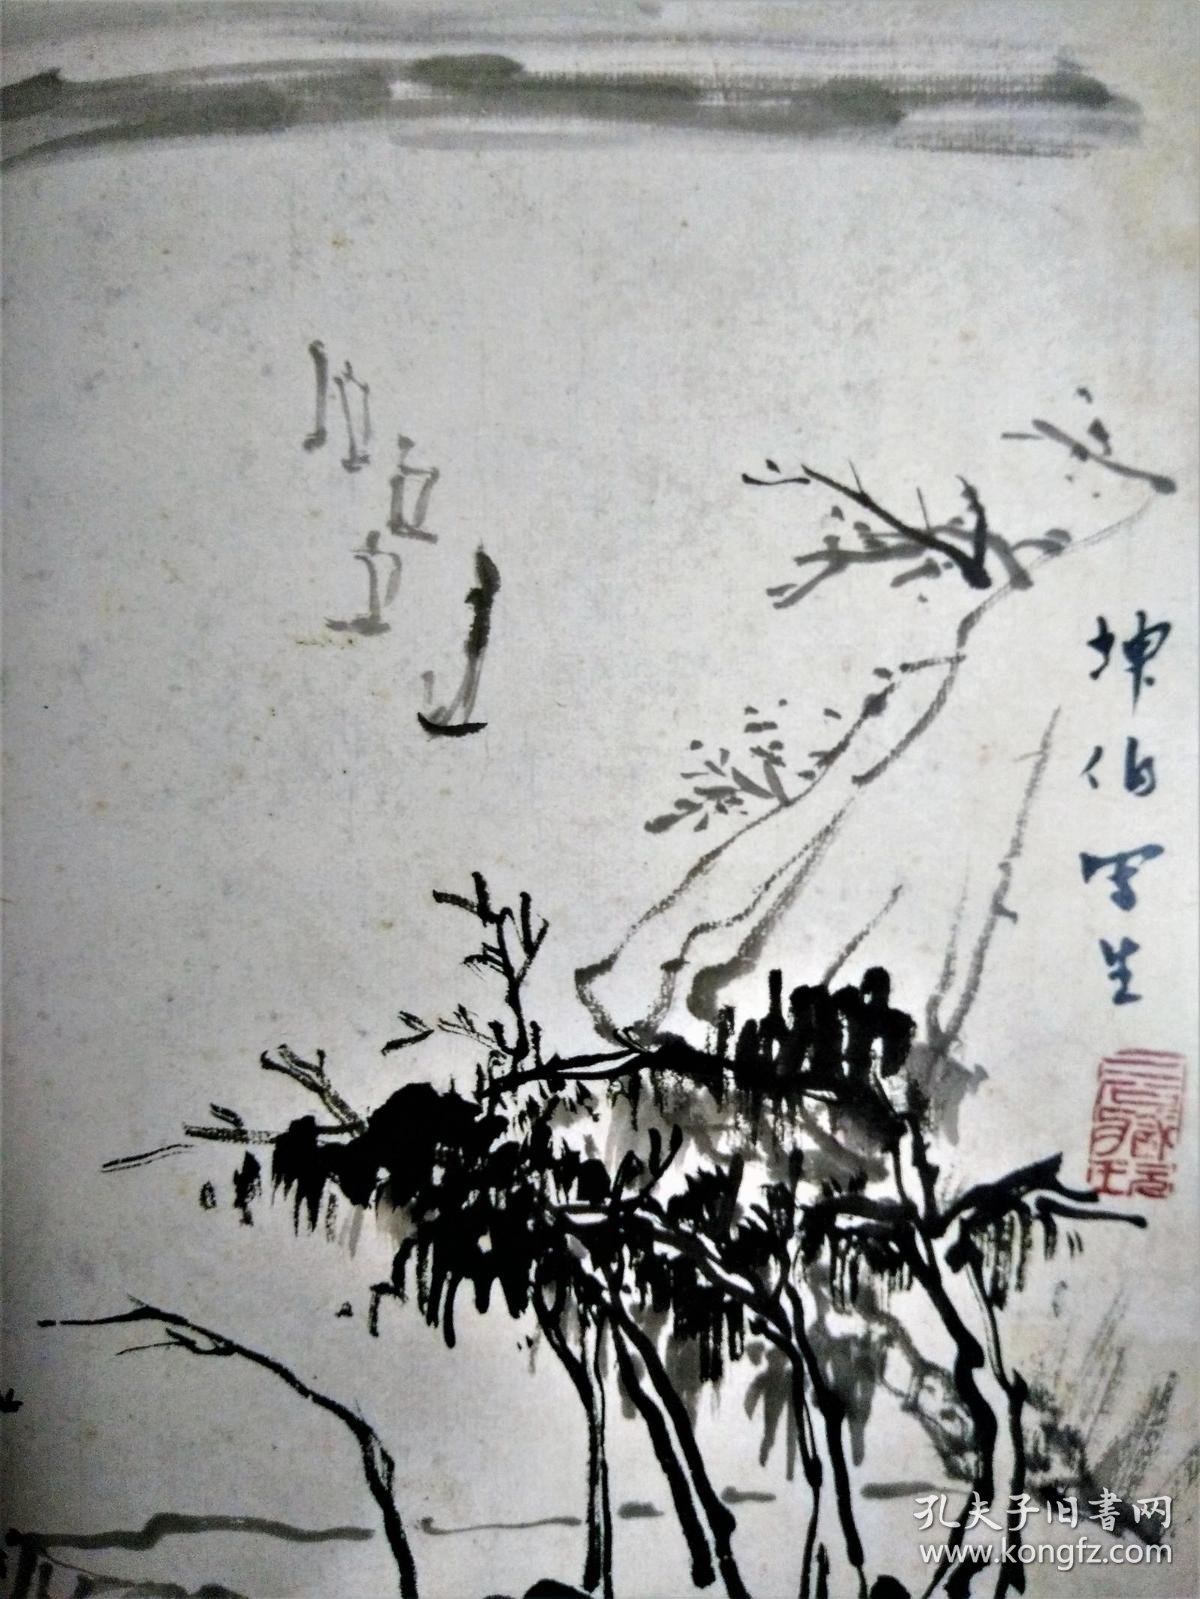 坤伯写生
孔夫子旧书网
www.kongfz.com